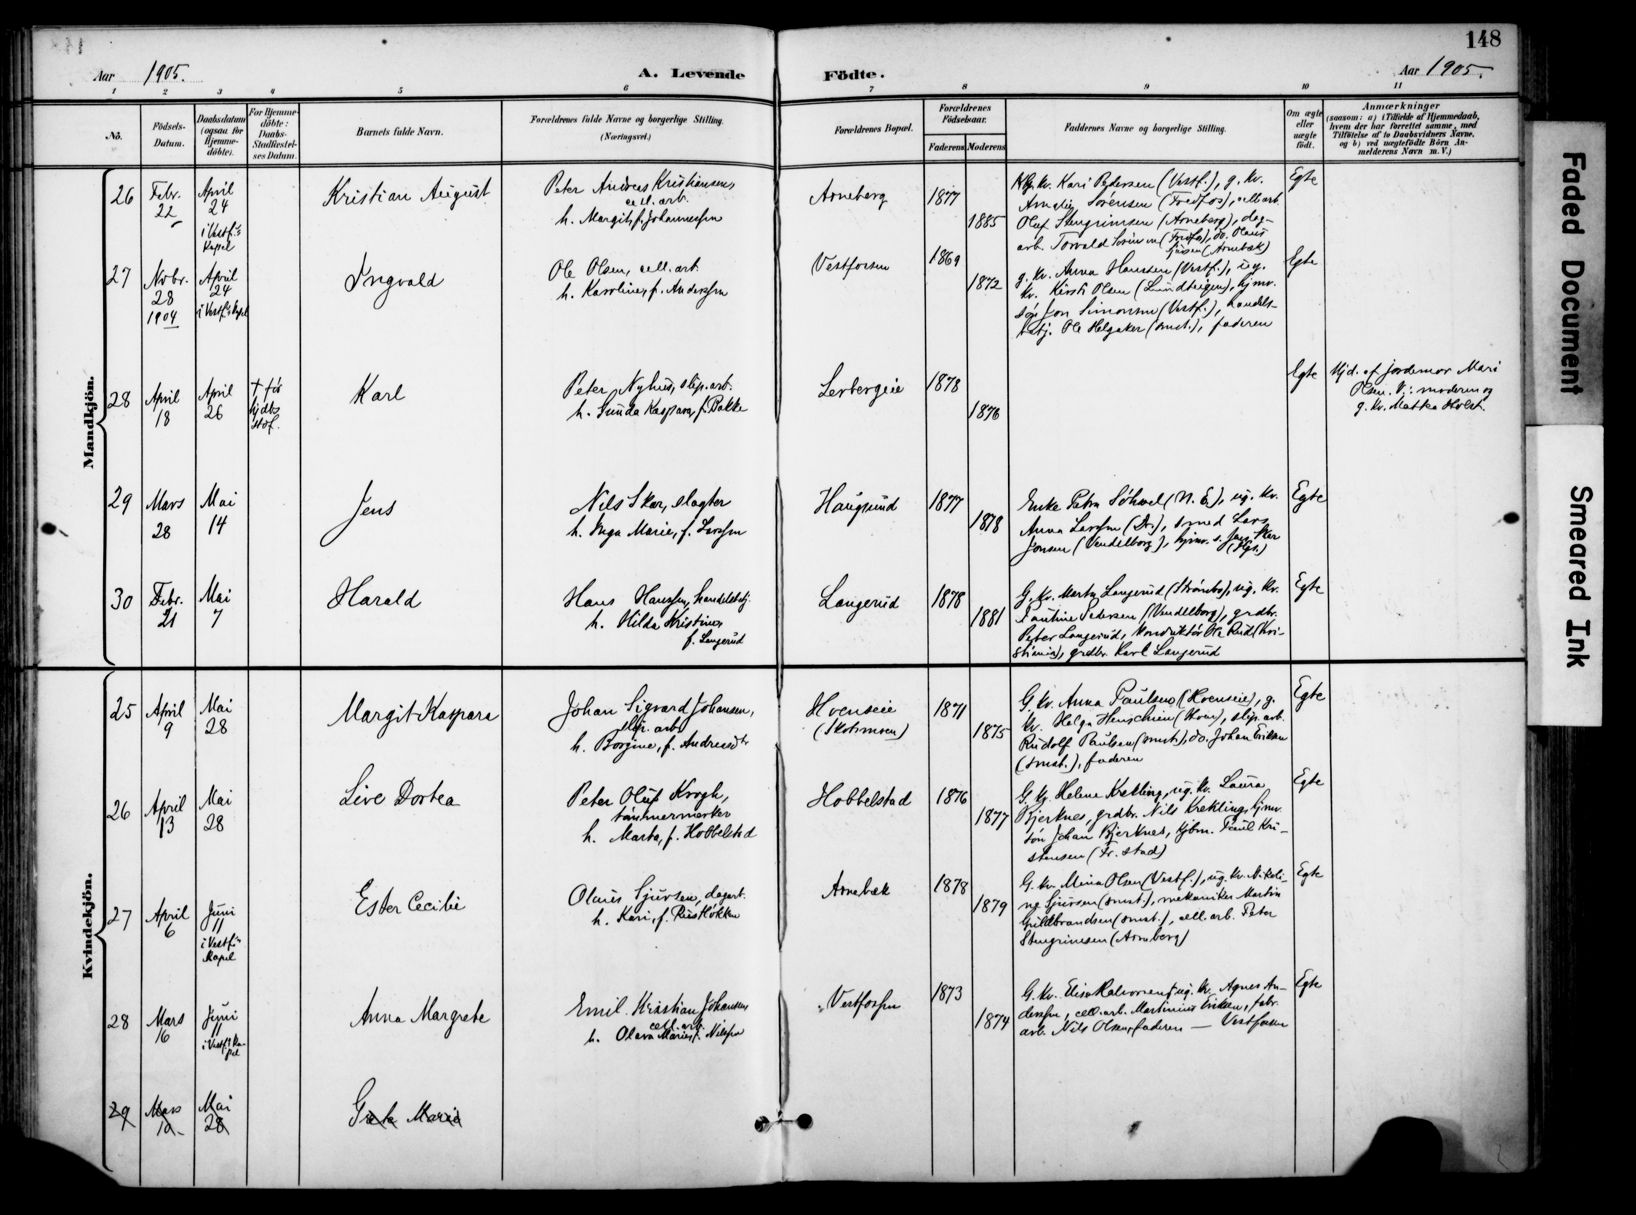 148
Aar 1905. A. Levende Födte. Aar 1905.
1 2 3 4 5 6 7 8 9 10 11
No.
Födsels-
Datum.
Daabsdatum
(ogsaa for
Hjemme-
döbte).
For Hjemme-
döbte:
Daabs-
Stadfæstel-
ses Datum.
Barnets fulde Navn.
Forældrenes fulde Navne og borgerlige Stilling.
(Næringsvei.)
Forældrenes Bopæl.
Forældrenes
Födselsaar.
Faderens Moderens
Faddernes Navne og borgerlige Stilling.
Om ægte
eller
uægte
födt.
Anmærkninger
(saasom: a) i Tilfælde af Hjemmedaab,
hvem der har forrettet samme, med
Tilföielse af to Daabsvidners Navne,
og b) ved uægtefödte Börn An-
melderens Navn m. V.)
Mandkjön.
26
Febr.
22
April
24
i Vestf.s
Kapel
Kristian August
Peter Andreas Kristiansen,
cell. arb.
h. Margit, f. Johannessen
Arneberg
1877
1885
Kari Pedersen (Vestf.), g. kv.
Sörensen (Fredfos), cell arb.
Oluf Stengrimsen (Arneberg), dag-
arb. Torvald Sörensen (Fredfos), do. Olaus
Sjursen (Arnebæk)
Egte
27
Novbr.
28
1904
April
24
i Vestf.s Kapel
Ingvald
Ole Olsen, cell. arb.
h. Karoline, f. Anderssen
Vestfossen
1869
1872
g. kv. Anna Hansen (Vestf.), ug.
kv. Kirsti Olsen (Lundteigen), hjmv.
sön Jon Simonsen (Vestf.), handels-
betj. Ole Helgaker (smst.), faderen
Egte
28
April
18
April
26
+ för
hjdbs
stdf.
Karl
Peter Nyhus, slip. arb.
h. Gunda Kaspara, f. Bakke
Lerbergeie
1878
1876
Egte
Hjd. af jordemor Mari
Olsen. V.: moderen og
g. kv. Mattea Holst.
29
Mars
28
Mai
14
Jens
Nils Skar, slagter
h. Inga Marie, f. Larssen
Haugsund
1877
1878
Enke Petra Söhoel (N. E.), ug. kv.
Anna Larssen (Dr.), smed Lars
Jonsen (Vendelborg), hjmv. s. Jens Skar
(Hgs.)
Egte
30
Febr.
21
Mai
7
Harald
Hans Hanssen, handelsbetj.
h. Hilda Kristine,
f. Langerud
Langerud
1878
1881
G. kv. Marty Langerud (Strömbo), ug. kv.
Pauline Pedersen (Vendelborg), grdbr.
Peter Langerud, konduktör Ole Rud (Kri-
stiania), grdbr. Karl Langerud
Egte
Kvindekjön.
25
April
9
Mai
28
Margit Kaspara
Johan Sigvard Johansen,
slip. arb.
h. Borgine, f. Andreasdtr
Hoenseie
(Skotsmoen)
1871
1875
G. kv. Anna Paulsen (Hoenseie), g.
kv. Helga Henschien (Hoen), slip. arb.
Rudolf Paulsen (smst.), do. Johan Eriksen
(smst.), faderen
Egte
26
April
13
Mai
28
Live Dortea
Peter Oluf Krogh,
tömmermerker
h. Marta, f. Hobbelstad
Hobbelstad
1876
1877
G. kv. Helene Krekling, ug. kv. Laura
Bjerknes, grdbr. Nils Krekling, hjmv.
sön Johan Bjerknes, kjbm. Paul Kri-
stensen (Fr. stad)
Egte
27
April
6
Juni
11
i Vestf.s
Kapel
Ester Cecilie
Olaus Sjursen, dagarb.
h. Kari, f. Ruskökka
Arnebæk
1878
1879
G. kv. Mina Olsen (Vestf.), ug. kv. Nikoli-
ne Sjursen (smst.), mekaniker Martin
Guldbrandsen (smst.), cell. arb. Peter
Stengrimsen (Arneberg)
Egte
28
Mars
16
Juni
11
i Vestf.s Ka-
pel
Anna Margrete
Emil Kristian Johansen
cell. arb.
h. Olava Marie, f. Nilssen
Vestfossen
1873
1874
G. kv. Elise Halvorsen, ug. kv. Agnes An-
derssen, cell. arb. Martinius Eriksen, fabr.
arb. Nils Olsen, faderen — Vestfossen
Egte
29
Mars
10
Mai
28
Maria
Faded Document
Smeared Ink